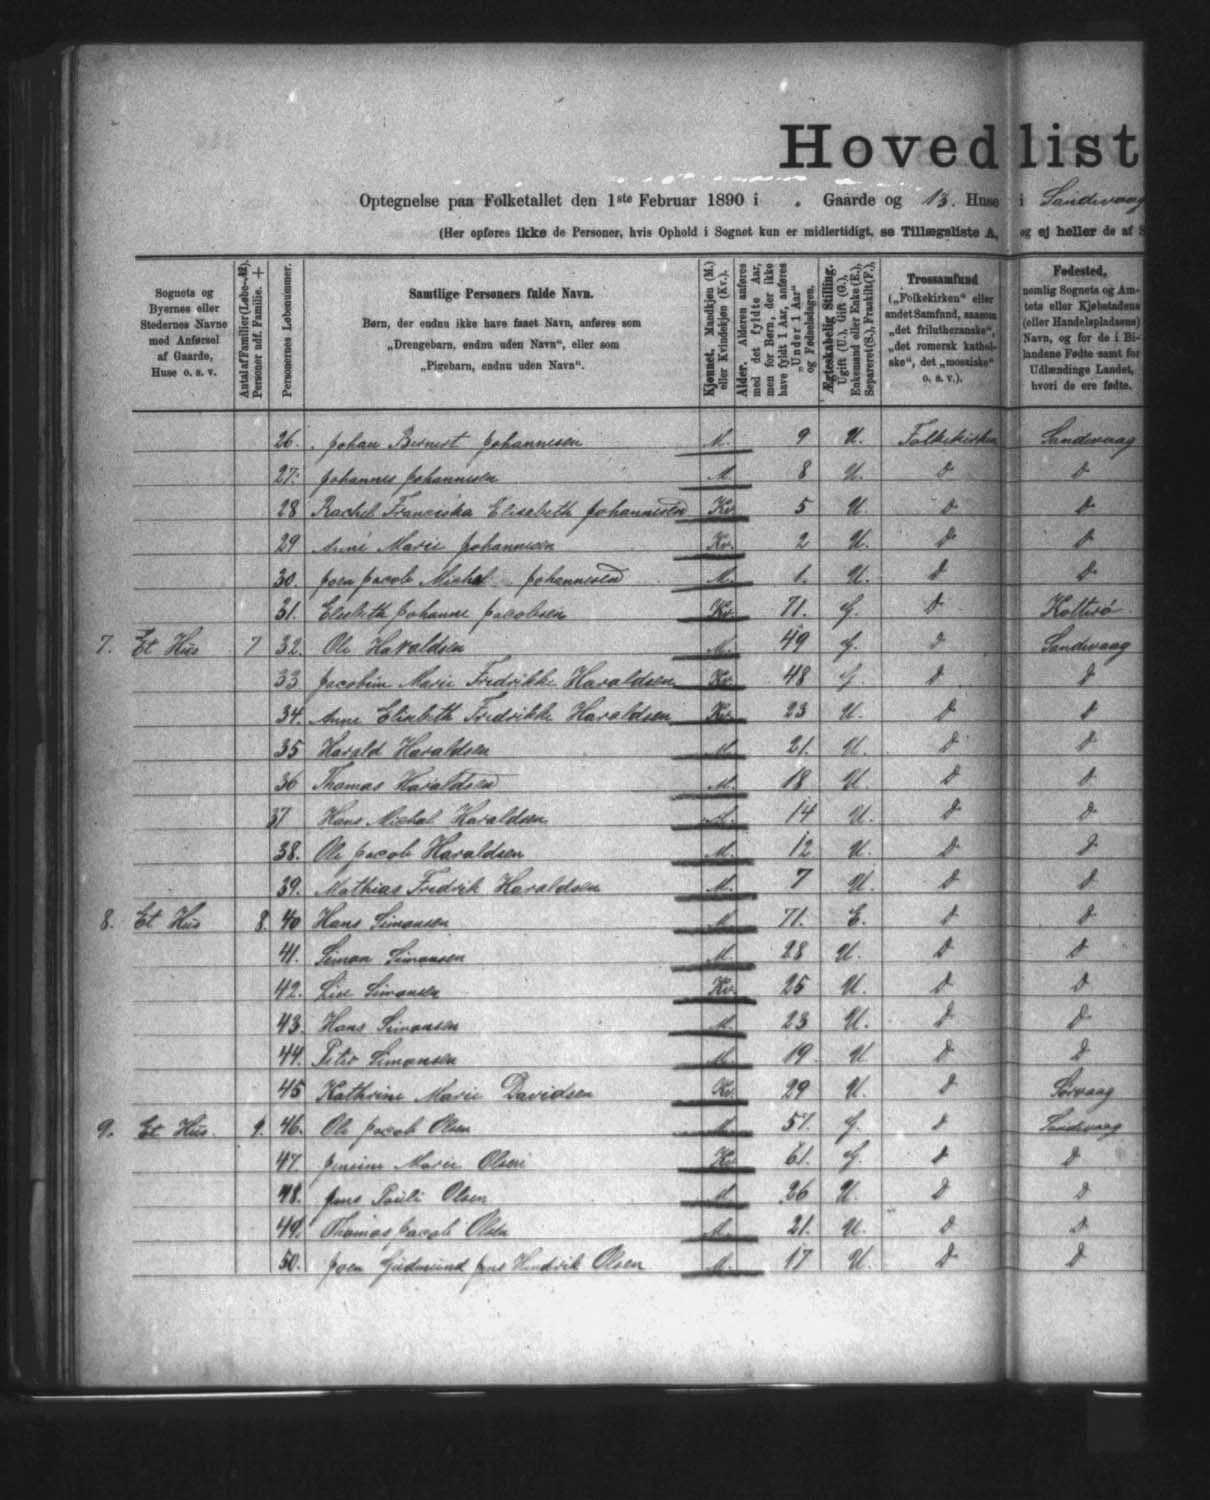 Hovedlist
Optegnelse paa Folketallet den 1ste Februar 1890 i . Gaarde og 13. Huse i Sandevaag
(Her opføres ikke de Personer, hvis Ophold i Sognet kun er midlertidigt, se Tillægsliste A, og ej heller de af S
Sognets og Byernes eller Stedernes Navne med Anførsel af Gaarde, Huse o. s. v.
Antal af Familier (Løbe-№). Personer udf. Familie. +
Personernes Løbenummer.
Samtlige Personers fulde Navn.
Børn, der endnu ikke have faaet Navn, anføres som
„Drengebarn, endnu uden Navn“, eller som
„Pigebarn, endnu uden Navn“.
Kjønnet. Mandkjøn (M.) eller Kvindekjøn (Kv.).
Alder. Alderen anføres med det fyldte Aar, men for Børn, der ikke have fyldt 1 Aar, anføres „Under 1 Aar“ og Fødselsdagen.
Ægteskabelig Stilling. Ugift (U.), Gift (G.), Enkemand eller Enke (E.), Separeret (S.), Fraskilt (F.).
Trossamfund („Folkekirken“ eller andet Samfund, saasom „det frilutheranske“, „det romersk katholske“, det „mosaiske“ o. s. v.).
Fødested, nemlig Sognets og Amtets eller Kjøbstadens (eller Handelspladsens) Navn, og for de i Bilandene Fødte samt for Udlændinge Landet, hvori de ere fødte.
26. Johan Bernert Johannesen M. 9 U. Folkekirken Sandevaag
27. Johannes Johannesen M. 8 U. D D
28 Rachel Franciska Elisabeth Johannesen Kv. 5 U. D D
29 Anne Marie Johannesen Kv. 2 U. D D
30. Joen Jacob Michal Johannesen M. 1. U. D D
31. Elsebeth Johanne Jacobsen Kv. 71. G. D Kolterø
7. Et Hus 7 32. Ole Haraldsen M. 49 G. D Sandevaag
33 Jacobine Marie Fredrikke Haraldsen Kv. 48 G. D D
34. Anne Elisabeth Fredrikke Haraldsen Kv. 23 U. D D
35 Harald Haraldsen M. 21. U. D D
36 Thomas Haraldsen M. 18 U. D D
37 Hans Michal Haraldsen M. 14 U. D D
38. Ole Jacob Haraldsen M. 12 U. D D
39. Mathias Fredrik Haraldsen M. 7 U. D D
8. Et Hus 8. 40 Hans Simonsen M. 71. E. D D
41. Simon Simonsen M. 28 U. D D
42. Lise Simonsen Kv. 25 U. D D
43. Hans Simonsen M. 23 U. D D
44. Peter Simonsen M. 19 U D D
45 Kathrine Marie Davidsen Kv. 29 U. D Sørvaag
9. Et Hus. 9. 46. Ole Jacob Olsen M. 57. G. D Sandevaag
47. Jensine Marie Olsen Kv. 61. G. D D
48. Jens Pauli Olsen M. 26 U. D D
49. Thomas Jacob Olsen M. 21. U. D D
50. Joen Gudmund Jens Hendrik Olsen M. 17 U. D D